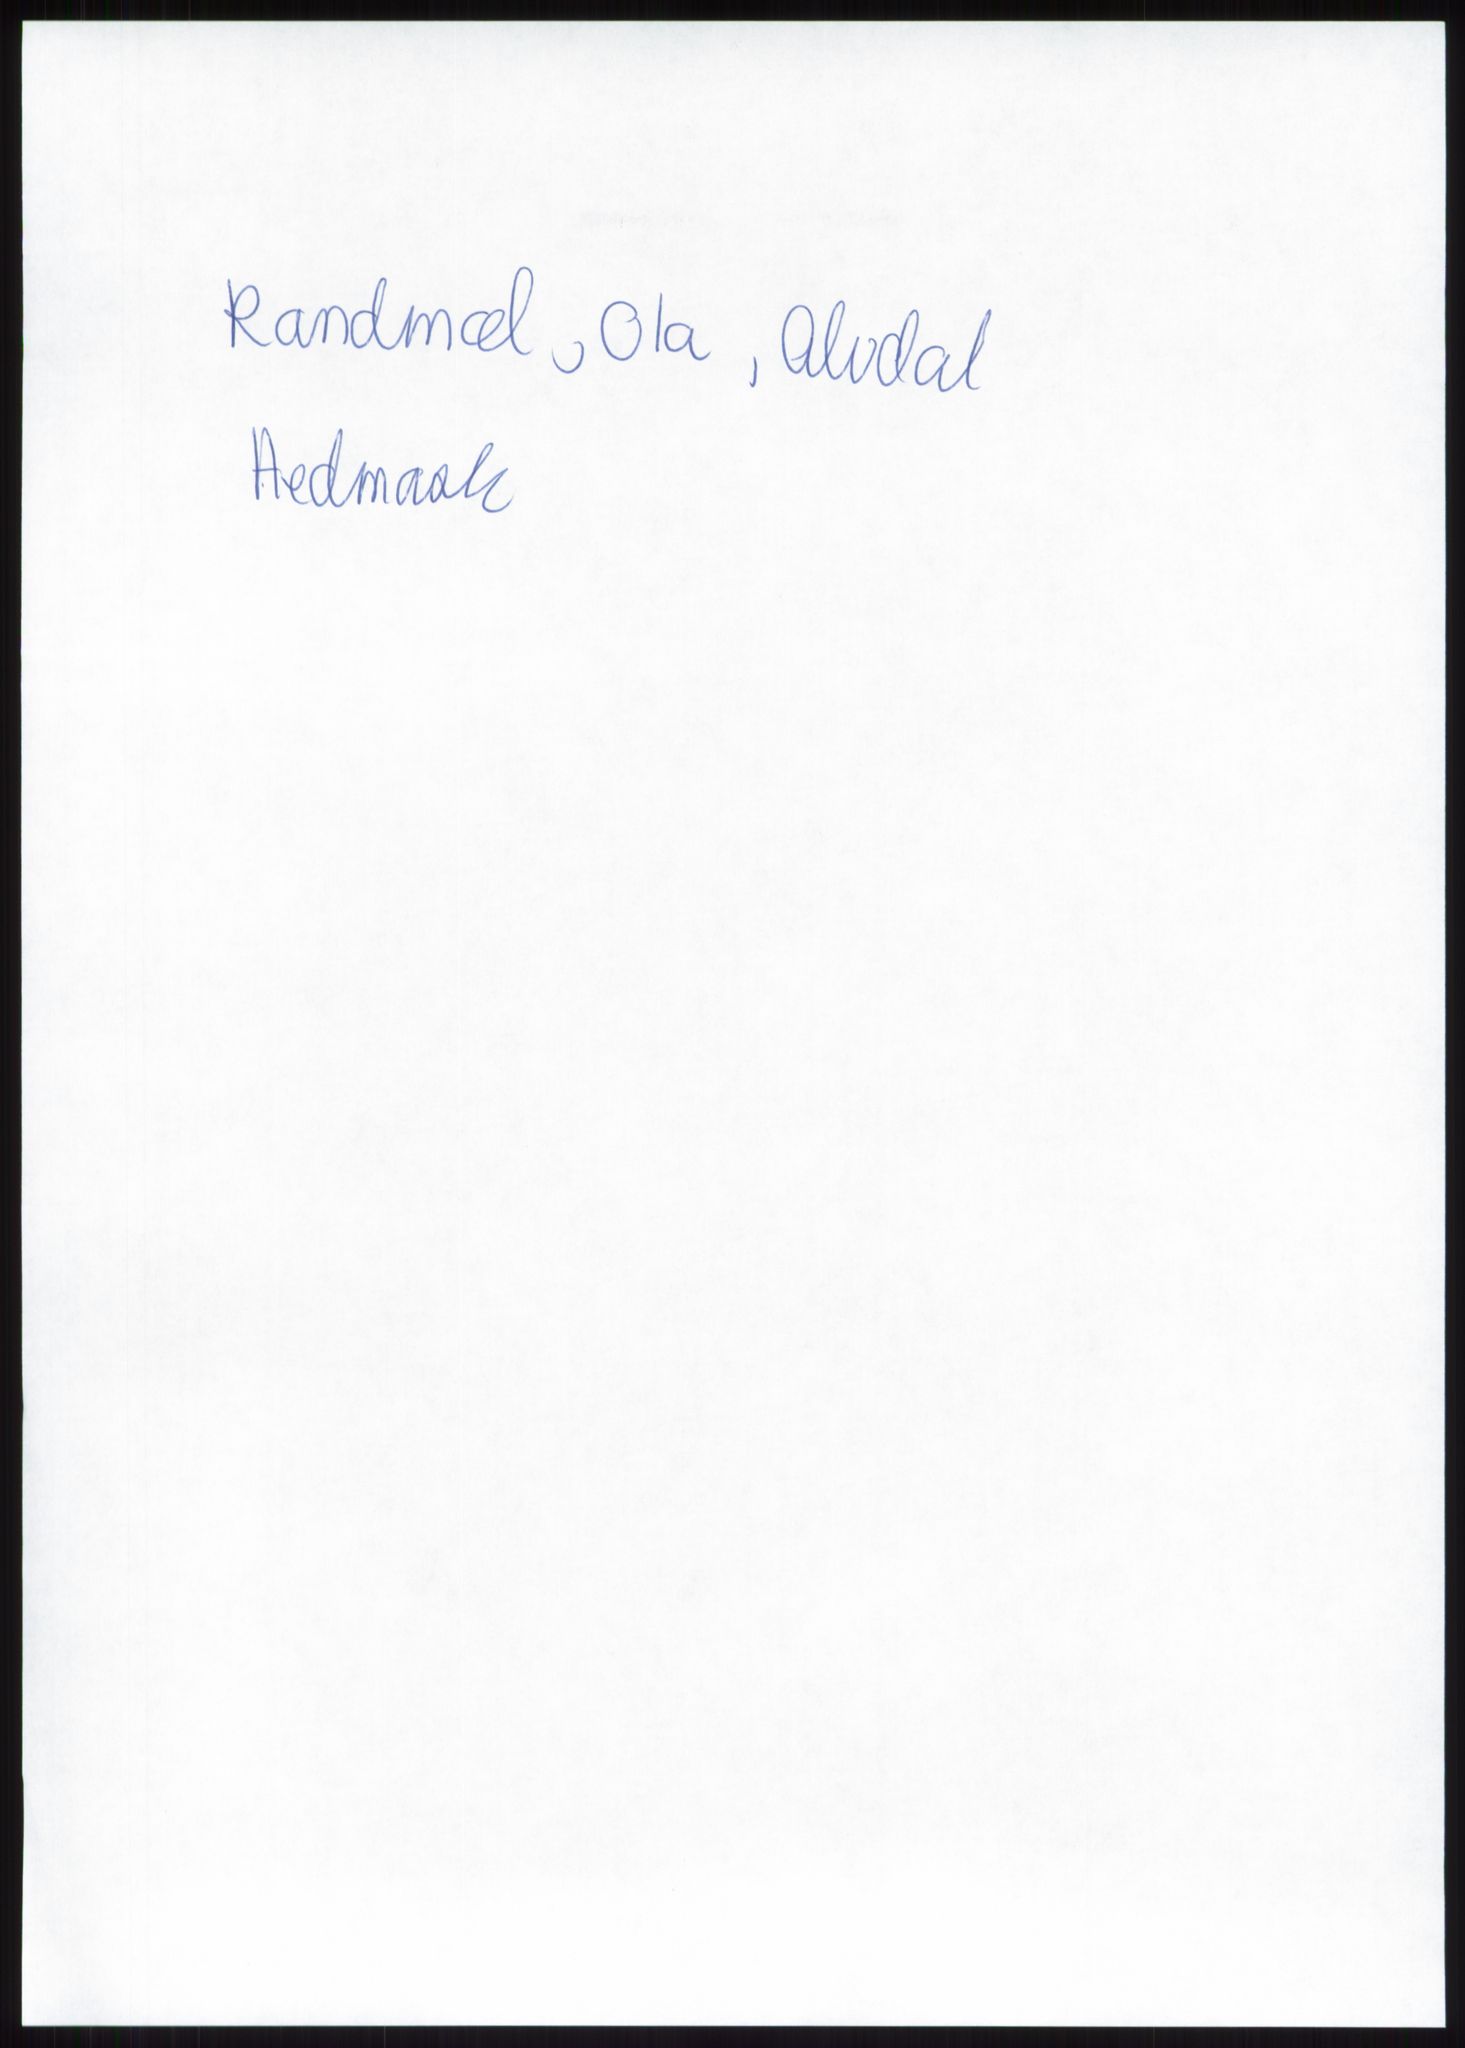 Randmæl, Ola, Alvdal
Hedmark